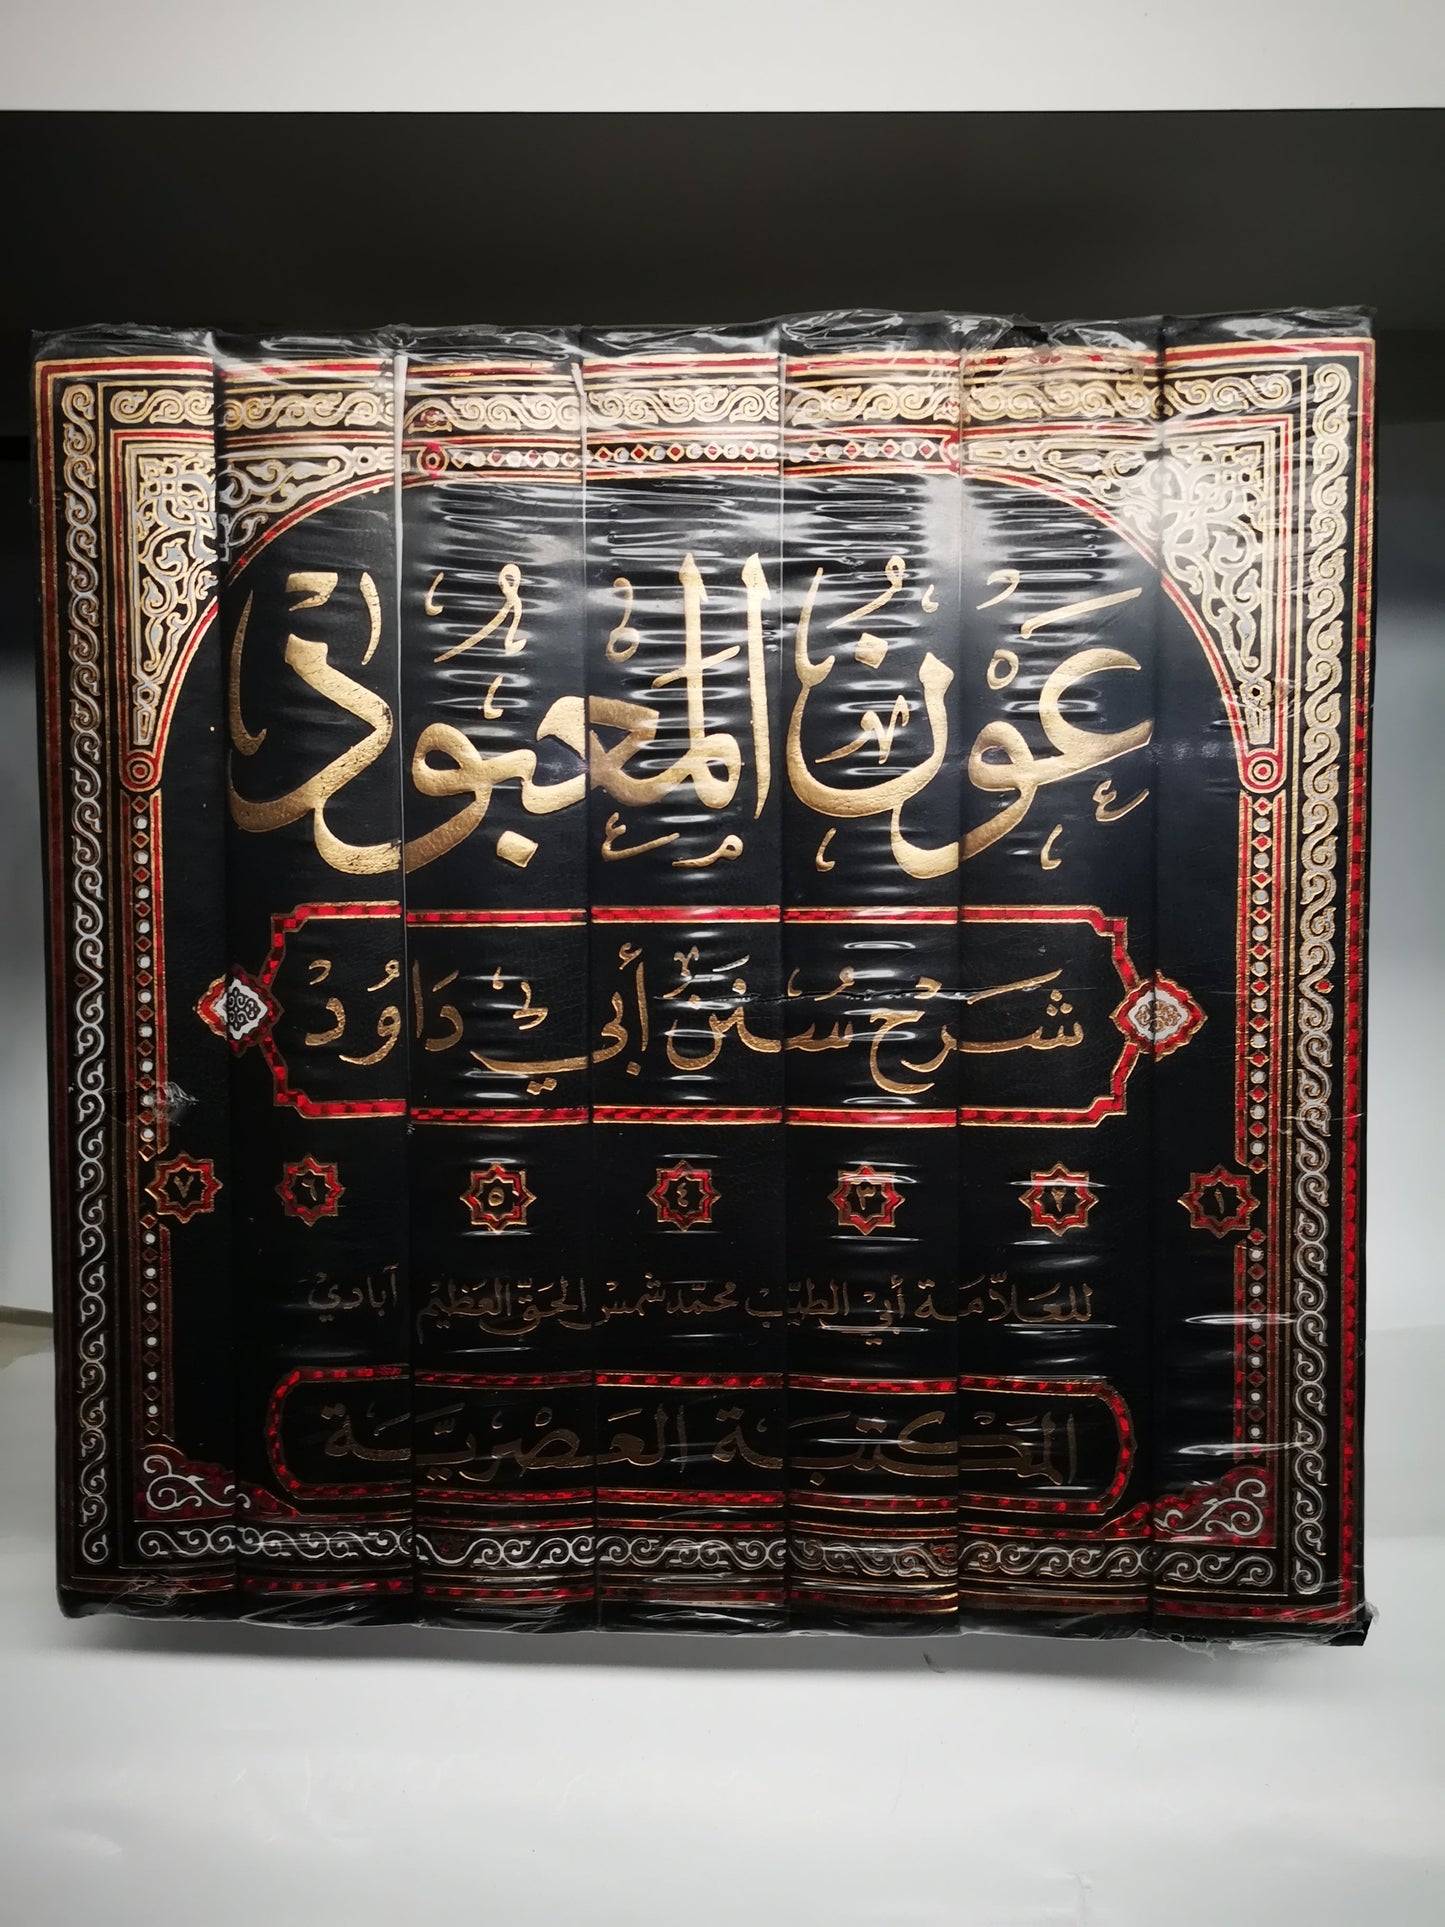 عَوْنُ المَعْبُودْ
شَرْحُ سُنَنْ أَبِي دَاوُدْ
١ ٢ ٣ ٤ ٥ ٦ ٧
للعَلاَّمَة أَبِيْ الطيِّبْ محمَّد شَمْس الحَقّ العَظِيْم آبَادِيْ
المَكْتَبَة العَصْرِيَّة